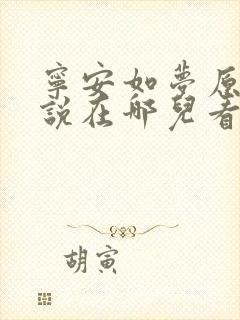 寧安如夢原
說在哪兒看
胡寅